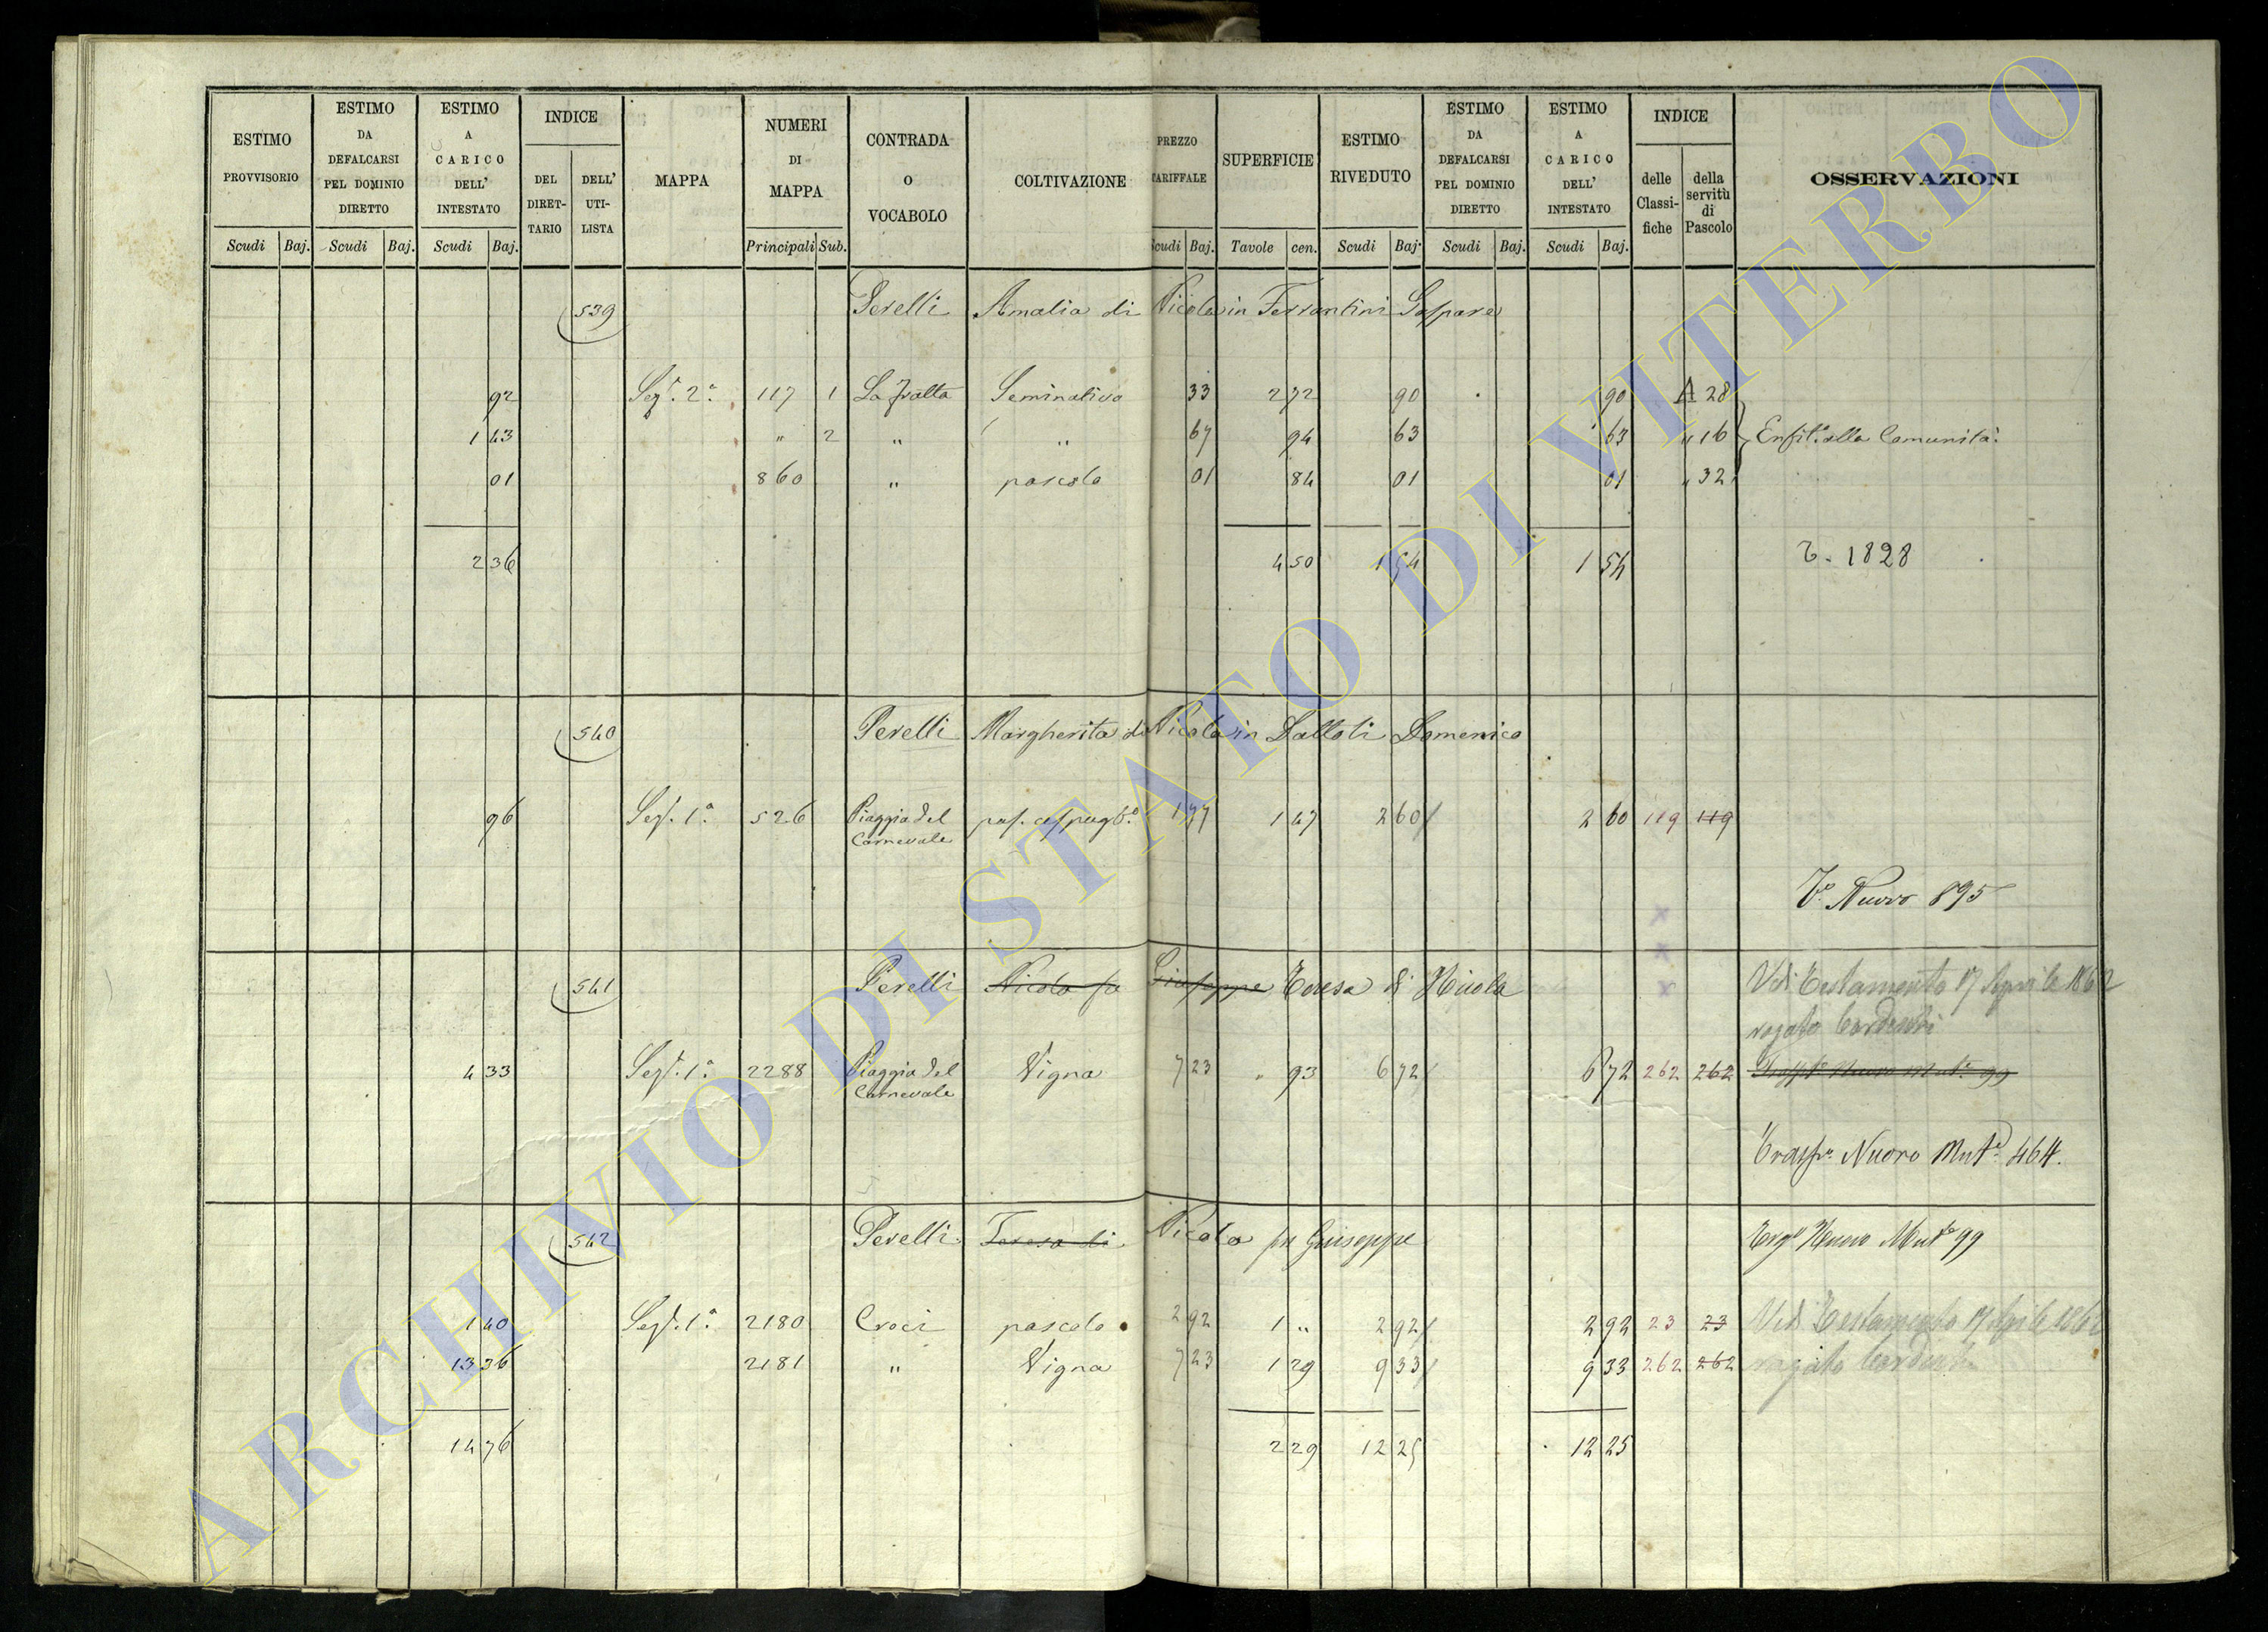 ESTIMO PROVVISORIO
ESTIMO DA DEFALCARSI PEL DOMINIO DIRETTO
ESTIMO A CARICO DELL' INTESTATO
INDICE
DEL DIRET-TARIO
DELL' UTI-LISTA
MAPPA
NUMERI DI MAPPA
CONTRADA O VOCABOLO
COLTIVAZIONE
PREZZO TARIFFALE
SUPERFICIE
ESTIMO RIVEDUTO
ESTIMO DA DEFALCARSI PEL DOMINIO DIRETTO
ESTIMO A CARICO DELL' INTESTATO
INDICE
delle Classi-fiche
della servitù di Pascolo
OSSERVAZIONI
Scudi Baj. Scudi Baj. Scudi Baj. Principali Sub. Scudi Baj. Tavole cen. Scudi Baj. Scudi Baj. Scudi Baj.
539 Perelli Amalia di Nicola in Ferrantini Gaspare
92 Sez. 2a 117 1 La Fratta Seminativo 33 2 72 90 90 A 28
1 43 " 2 " " 67 94 63 63 " 16 Enfit. alla Comunità
01 860 " pascolo 01 84 01 01 " 32
2 36 4 50 1 54 1 54 1828
540 Perelli Margherita di Nicola in Domenico
96 Sez. 1a 526 Piaggia del Carnevale 1 77 1 47 2 60 2 60 119 119
Nuovo 895
541 Perelli Nicola fu Giuseppe Teresa di Nicola Vedi Testamento 17 Aprile 1862
rogato
4 33 Sez. 1a 2288 Piaggia del Carnevale Vigna 7 23 " 93 6 72 6 72 262 262 Nuovo Mut. 99
Nuovo Mut. 464.
542 Perelli Teresa di Nicola fu Giuseppe Nuovo Mut. 99
1 40 Sez. 1a 2180 Croci pascolo 2 92 1 " 2 92 2 92 23 23 Vedi Testamento 17 Aprile 1862
13 36 2181 " Vigna 7 23 1 29 9 33 9 33 262 262 rogato
14 76 2 29 12 25 12 25
ARCHIVIO DI STATO DI VITERBO